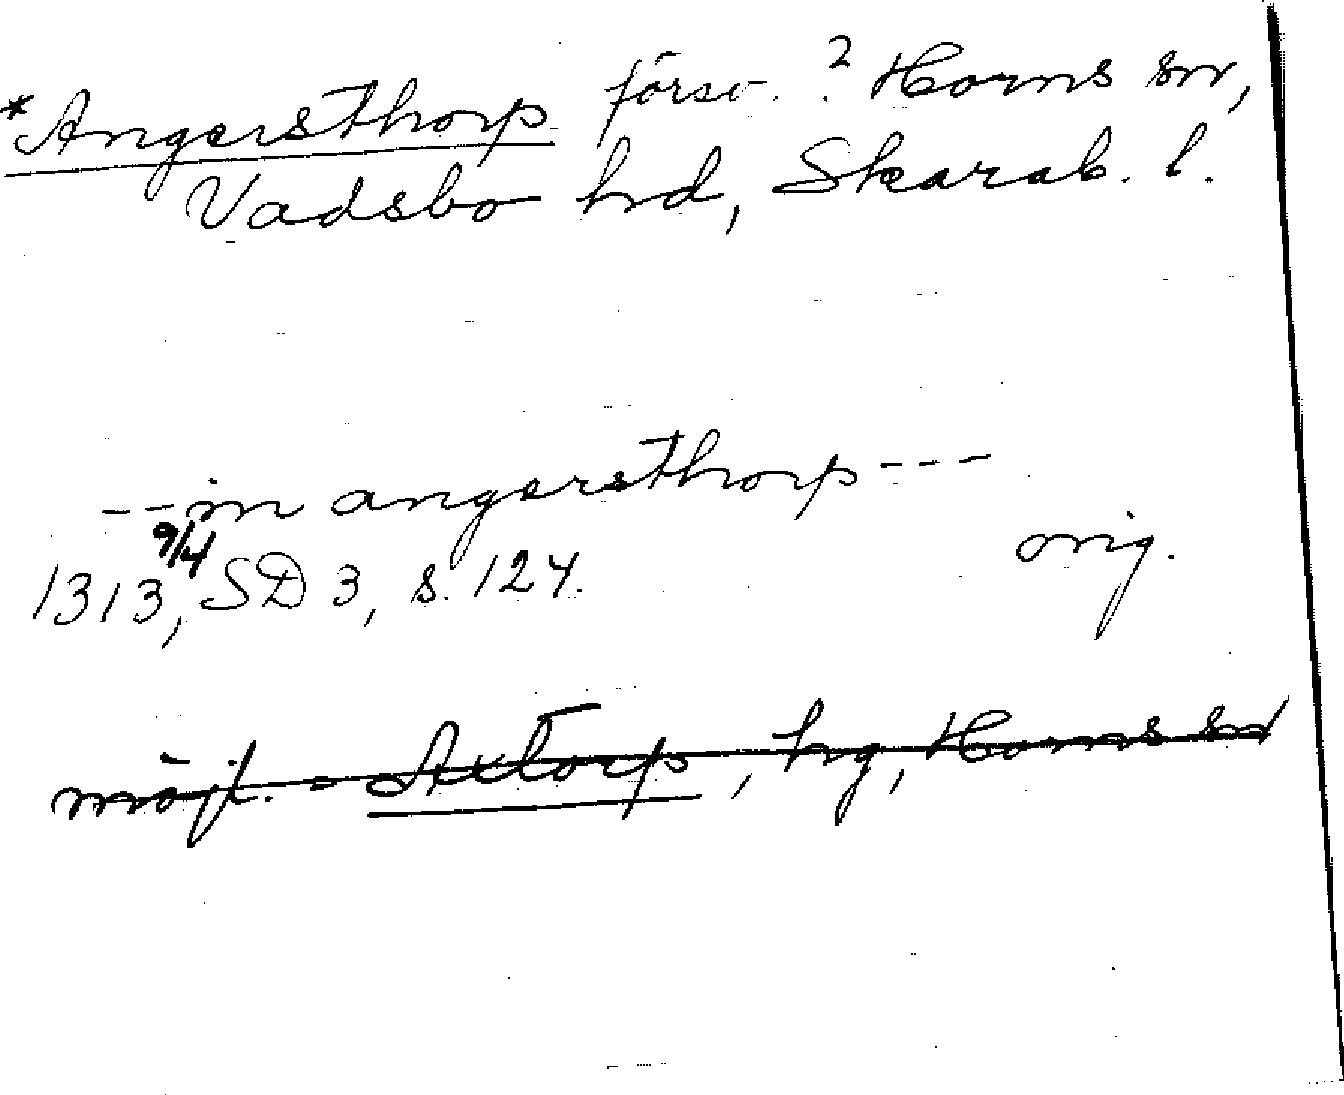 *Angersthorp försv. ? Horns sn,
Vadsbo hd, Skarab. l.
--in angersthorp---
1313 9/4, SD 3, s. 124. orig.
möjl. = Axtorp, hg, Horns sn